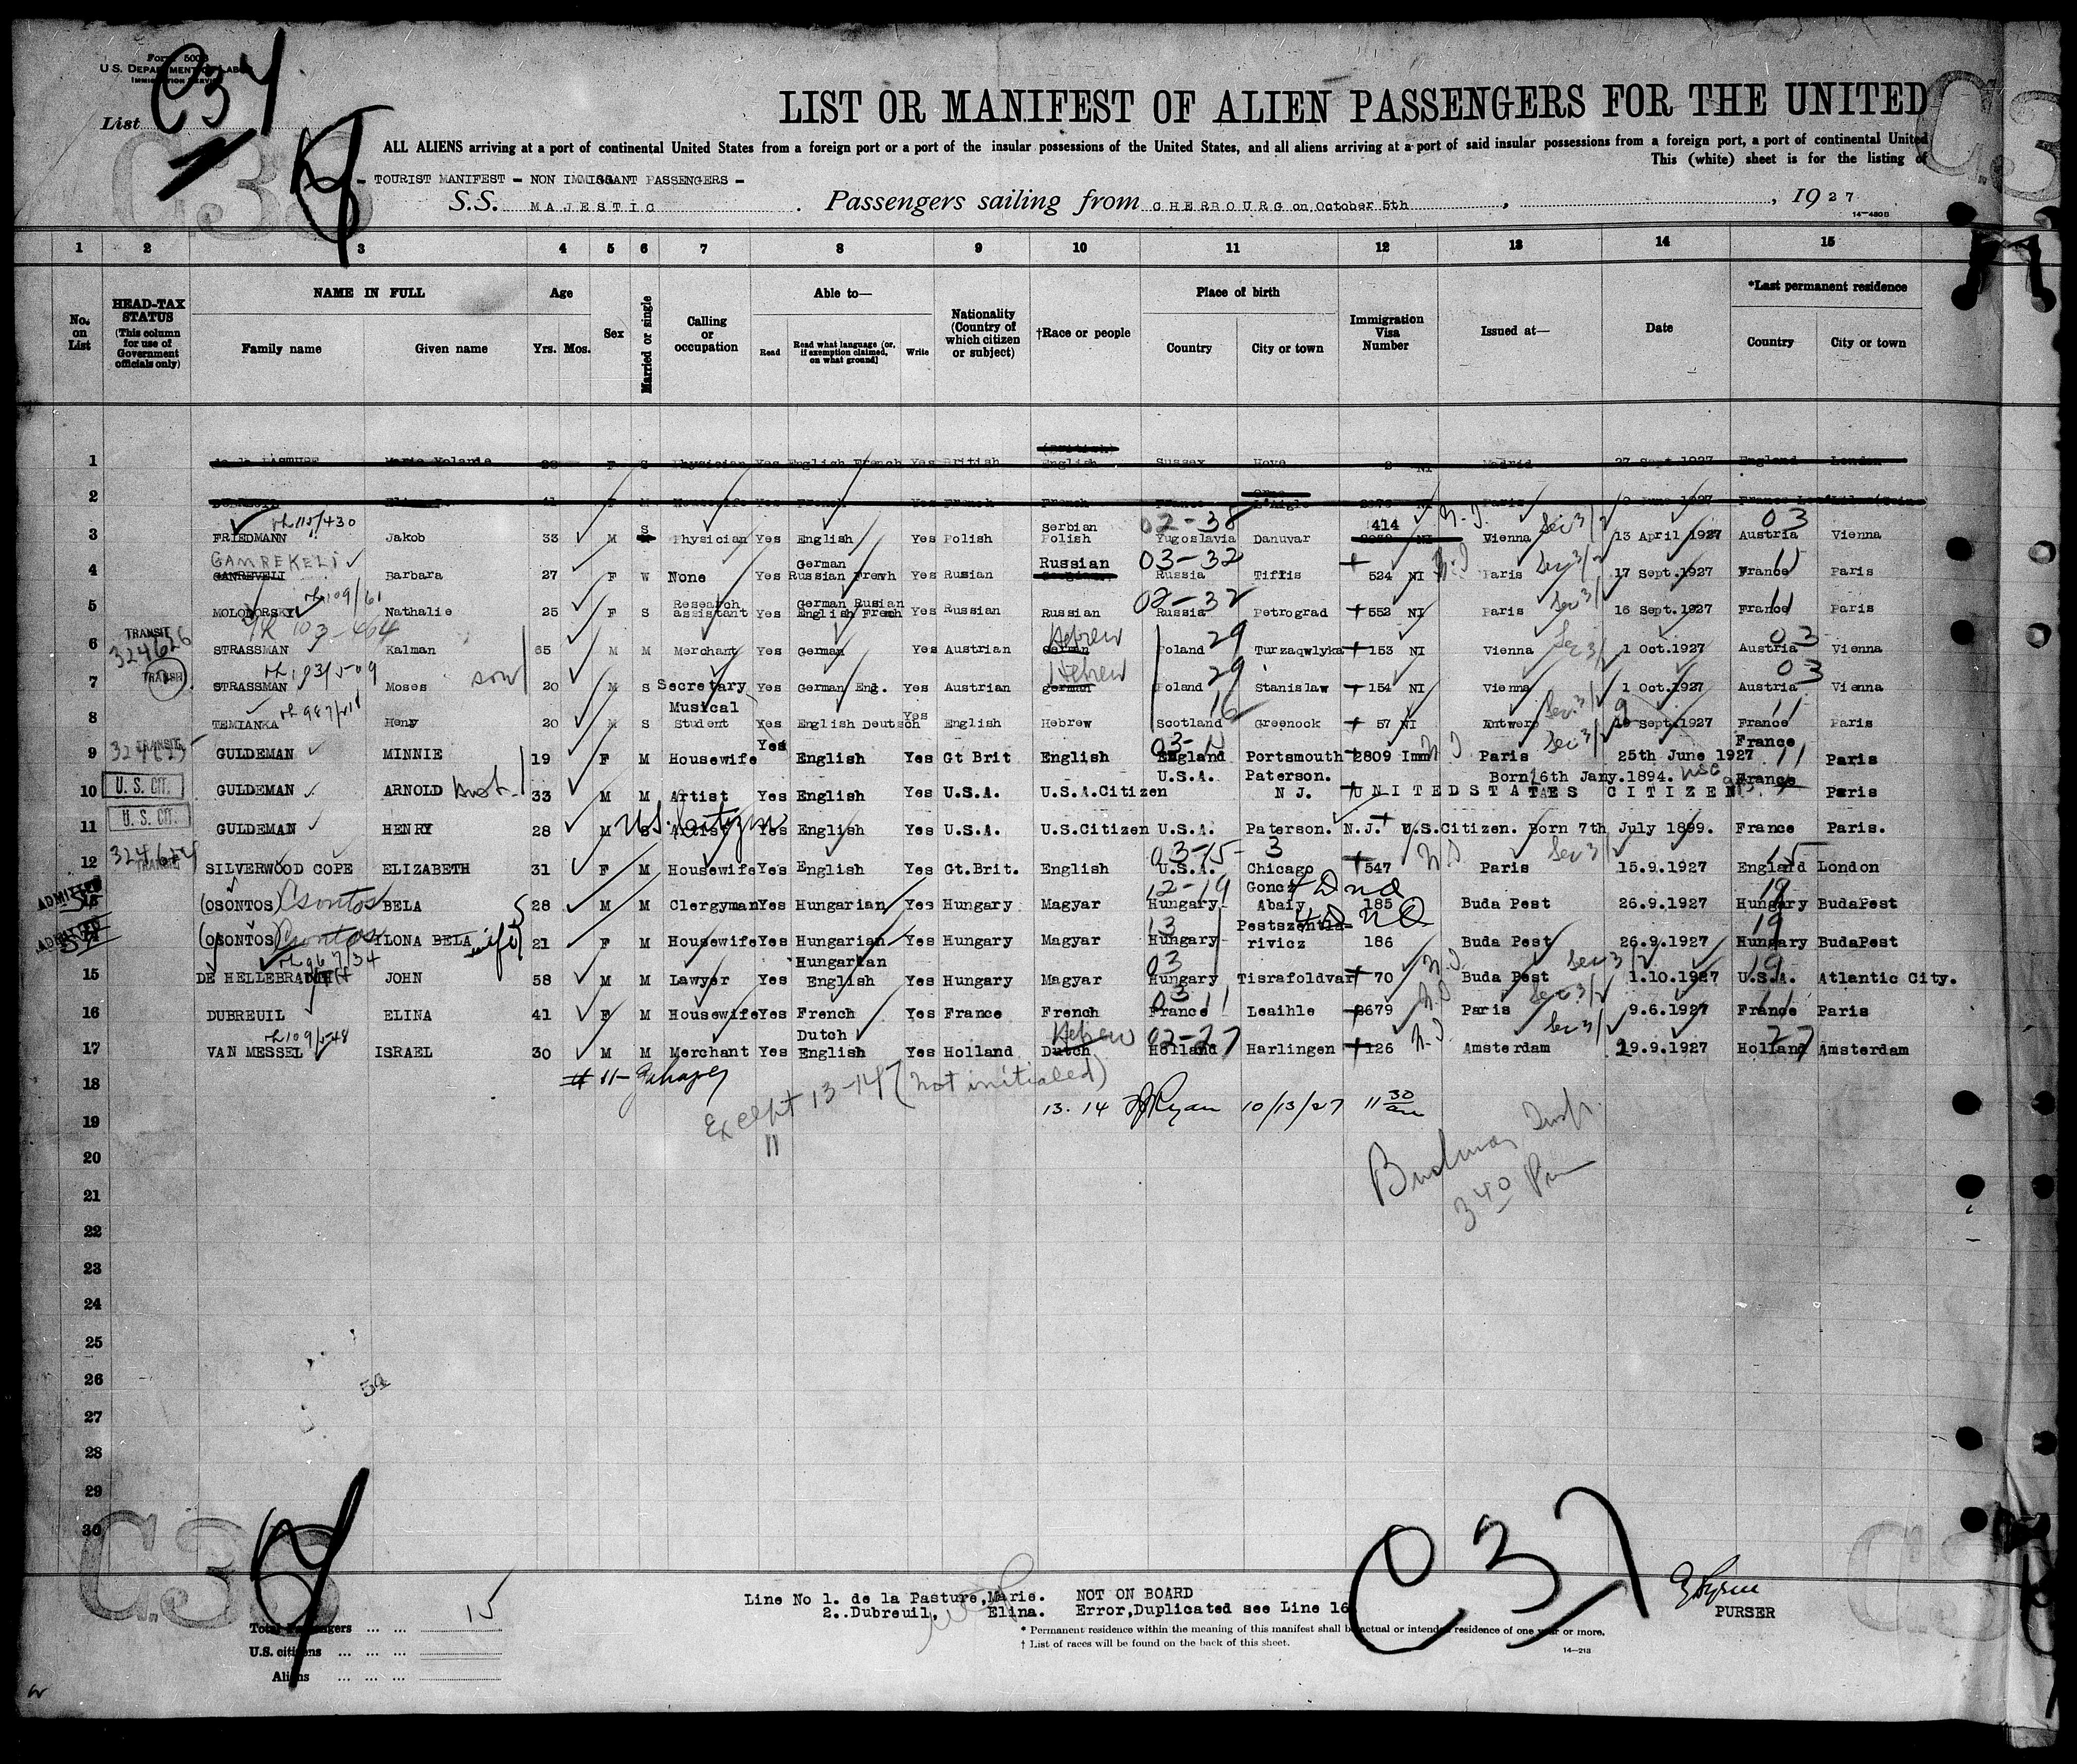 Form 500
U.S. DEPARTMENT OF LABOR
IMMIGRATION SERVICE
List C34
LIST OR MANIFEST OF ALIEN PASSENGERS FOR THE UNITED
ALL ALIENS arriving at a port of continental United States from a foreign port or a port of the insular possessions of the United States, and all aliens arriving at a port of said insular possessions from a foreign port, a port of continental United
This (white) sheet is for the listing of
- TOURIST MANIFEST - NON IMMIGRANT PASSENGERS -
S.S. MAJESTIC. Passengers sailing from CHERBOURG on October 5th, 1927
14-480B
1 2 3 4 5 6 7 8 9 10 11 12 13 14 15
No. on List
HEAD-TAX STATUS (This column for use of Government officials only)
NAME IN FULL
Family name Given name
Age
Yrs. Mos.
Sex
Married or single
Calling or occupation
Able to—
Read Read what language (or, if exemption claimed, on what ground) Write
Nationality (Country of which citizen or subject)
†Race or people
Place of birth
Country City or town
Immigration Visa Number
Issued at—
Date
*Last permanent residence
Country City or town
1 de la PASTURE Marie Yolande F S Physician Yes English French Yes British (British) English Sussex Hove NI Madrid 27 Sept 1927 England London
2 41 F M Housewife Yes French Yes French French France Orne L'Aigle NI Paris June 1927
3 FRIEDMANN Jakob 33 M S Physician Yes English Yes Polish Serbian Polish 02-38 Yugoslavia Danuvar 414 NI N.I. Vienna Sec 3/2 13 April 1927 03 Austria Vienna
4 GAMREKELI GANREVELI Barbara 27 F W None Yes German Russian French Yes Rusian Russian 03-32 Russia Tiflis 524 NI Paris Sec 3/2 17 Sept.1927 11 France Paris
5 MOLODORSKY Nathalie 25 F S Research assistant Yes German Rusian English Frech Yes Russian Russian 02-32 Russia Petrograd 552 NI Paris Sec 3/ 16 Sept.1927 11 France Paris
6 TRANSIT 324626 STRASSMAN Kalman 65 M M Merchant Yes German Yes Austrian Hebrew German 29 Poland Turzaqwlyka 153 NI Vienna Sec 3/ 1 Oct.1927 03 Austria Vienna
7 TRANSIT STRASSMAN Moses son 20 M S Secretary Yes German Eng. Yes Austrian Hebrew german 29 Poland Stanislaw 154 NI Vienna 1 Oct.1927 03 Austria Vienna
8 TEMIANKA Heny 20 M S Musical Student Yes English Deutsch Yes English Hebrew 16 Scotland Greenock 57 NI Antwerp Sec. 3/ Sept.1927 11 France Paris
9 TRANSIT GULDEMAN MINNIE 19 F M Housewife Yes English Yes Gt Brit English England Portsmouth 2809 Imm N.I. Paris Sec 3/ 25th June 1927 France 11 Paris
10 U.S. CIT. GULDEMAN ARNOLD 33 M M Artist Yes English Yes U.S.A. U.S.A.Citizen U.S.A. Paterson. N J. Born 6th Jany.1894. UNITED STATES CITIZEN France Paris
11 U.S. CIT. GULDEMAN HENRY 28 M S Artist Yes U.S. Citizen English Yes U.S.A. U.S.Citizen U.S.A. Paterson. N.J. U.S.Citizen. Born 7th July 1899. France Paris.
12 TRANSIT SILVERWOOD COPE ELIZABETH 31 F M Housewife Yes English Yes Gt.Brit. English 03-15- U.S.A. 3 Chicago 547 Paris Sec 3/ 15.9.1927 15 England London
13 ADMITTED (OSONTOS) Csontos BELA 28 M M Clergyman Yes Hungarian Yes Hungary Magyar 12-19 Hungary Goncz Abaiy 185 Buda Pest 26.9.1927 19 Hungary BudaPest
14 ADMITTED (OSONTOS) Csontos ILONA BELA wife 21 F M Housewife Yes Hungarian Yes Hungary Magyar 13 Hungary rivicz 186 Buda Pest 26.9.1927 19 Hungary BudaPest
15 DE HELLEBRA JOHN 58 M M Lawyer Yes Hungarian English Yes Hungary Magyar 03 Hungary Tisrafoldvar 70 N.I. Buda Pest Sec 3/2 1.10.1927 19 U.S.A. Atlantic City.
16 DUBREUIL ELINA 41 F M Housewife Yes French Yes France French 03 11 France Leaihle 2679 Paris Sec 3/ 9.6.1927 11 France Paris
17 VAN MESSEL ISRAEL 30 M M Merchant Yes Dutch English Yes Holland Hebrew Dutch 02-27 Holland Harlingen 126 N.I. Amsterdam Sec 3/ 19.9.1927 27 Holland Amsterdam
18 # 11-
Except 13-14 (not initialed)
11
13. 14 Ryan 10/13/27 11 30 am
19
20 Insp.
21 3 40 Pm
22
23
24
25
26
27
28
29
30
C 37
Line No 1. de la Pasture, Marie. NOT ON BOARD
2. Dubreuil, Elina. Error, Duplicated see Line 16
PURSER
Total Passengers ... ... 15
U.S. citizens ... ... ...
Aliens ... ... ...
* Permanent residence within the meaning of this manifest shall be actual or intended residence of one year or more.
† List of races will be found on the back of this sheet.
14-213